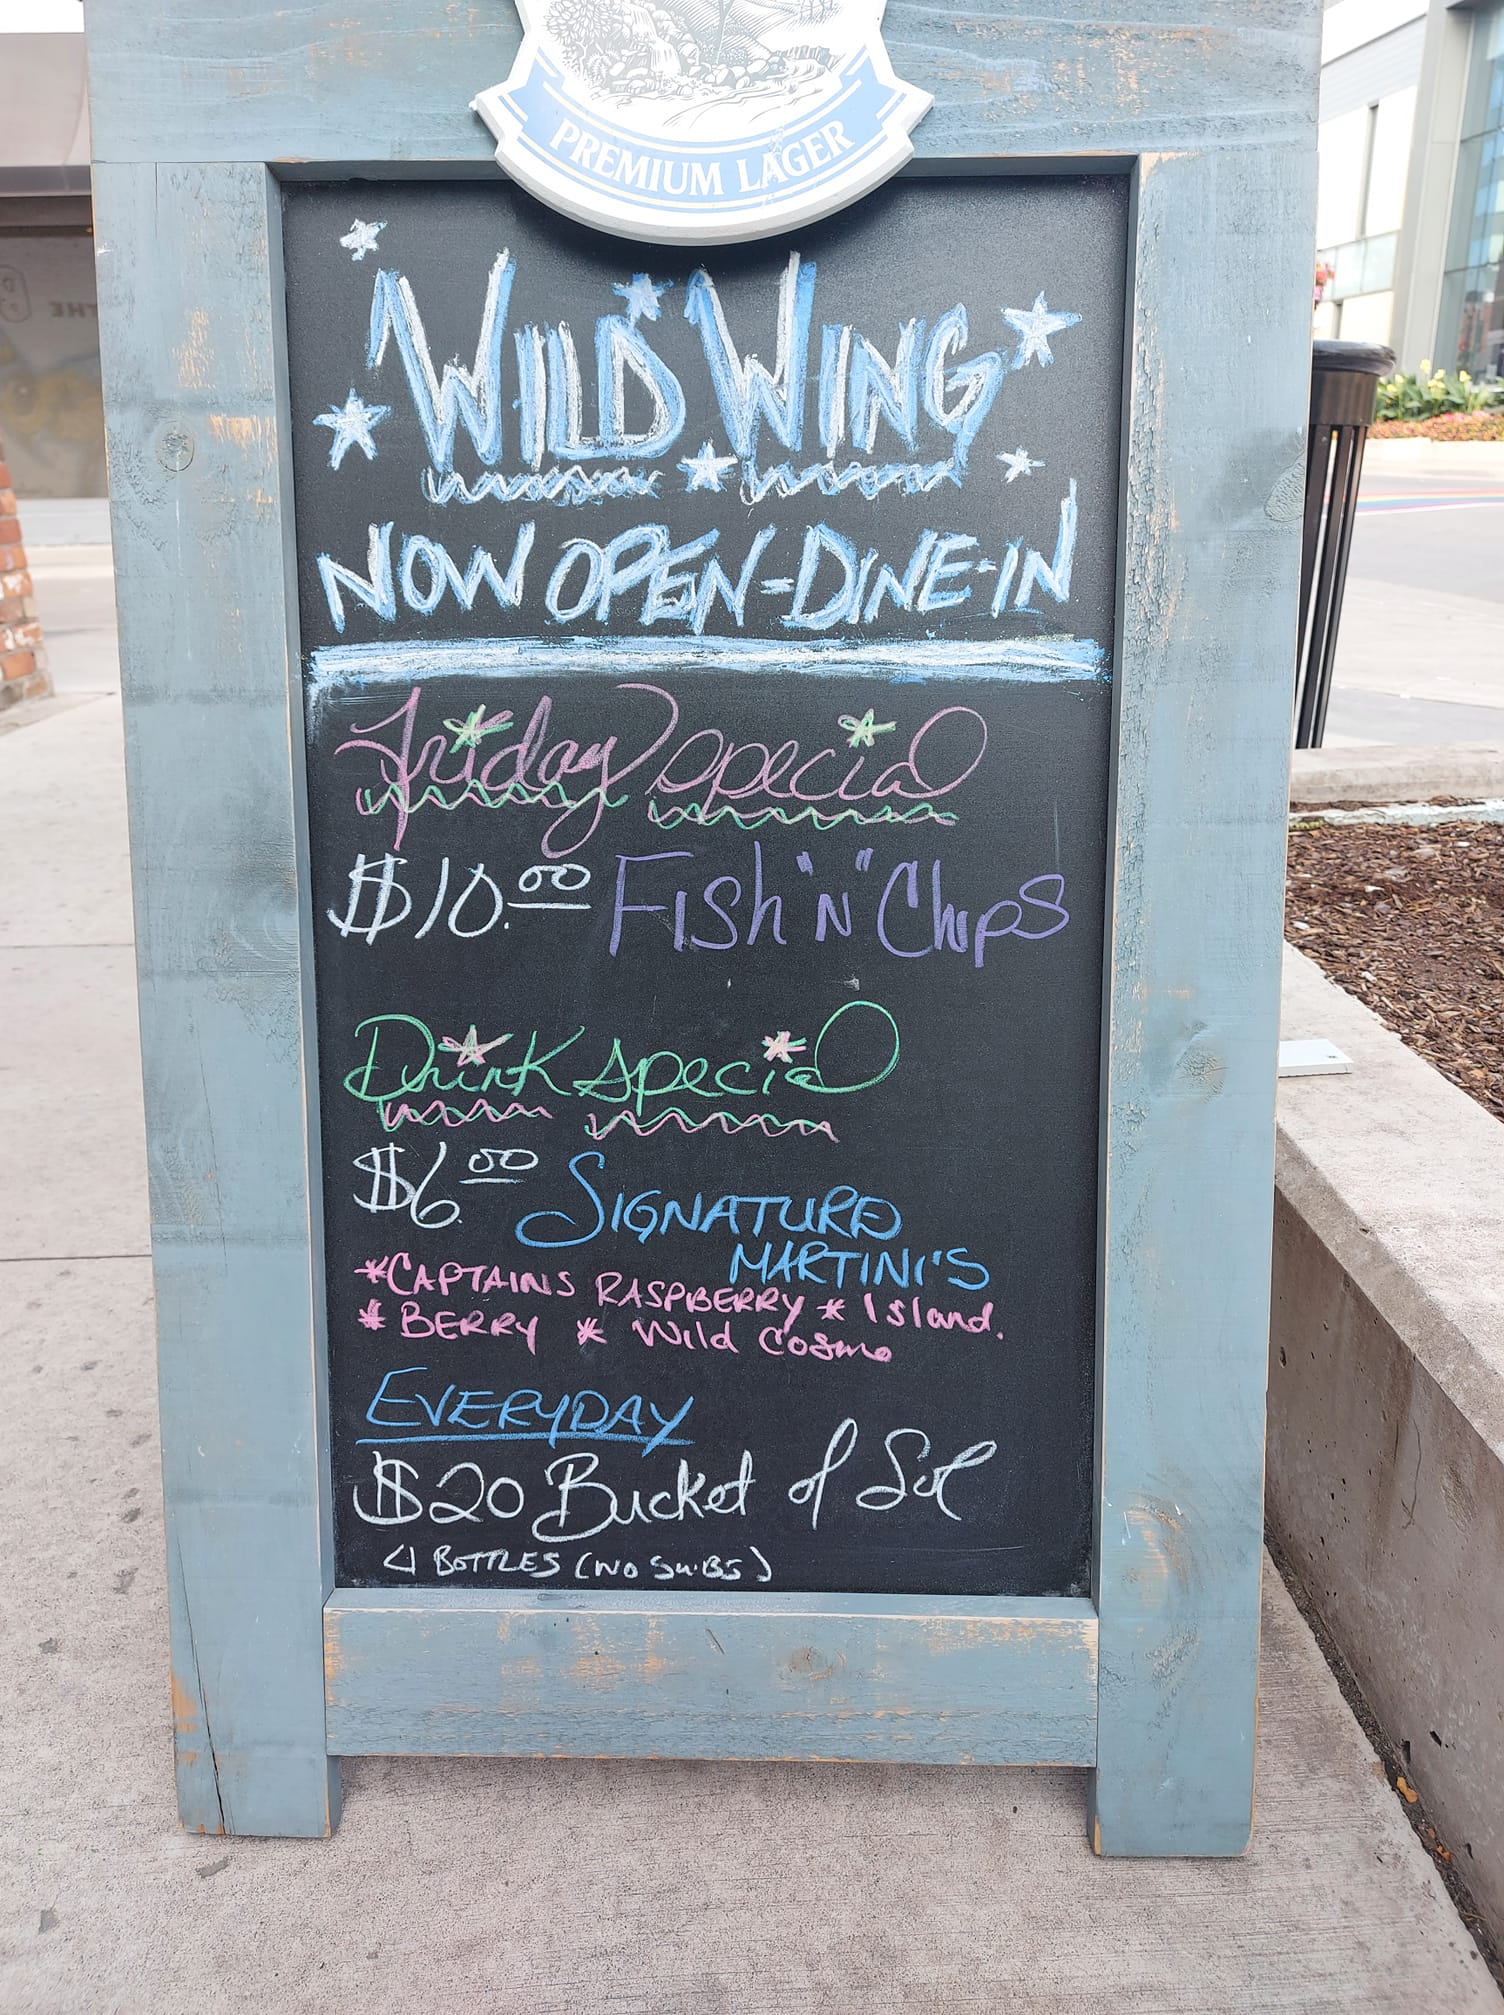 PREMIUM LAGER
WILD WING
NOW OPEN-DINE-IN
Friday special
$10.00 Fish "N" Chips
Drink special
$6.00 SIGNATURE
MARTINI'S
*CAPTAINS RASPBERRY * Island.
* BERRY * Wild Cosmo
EVERYDAY
$20 Bucket of Sol
4 BOTTLES (NO SUBS)
THE